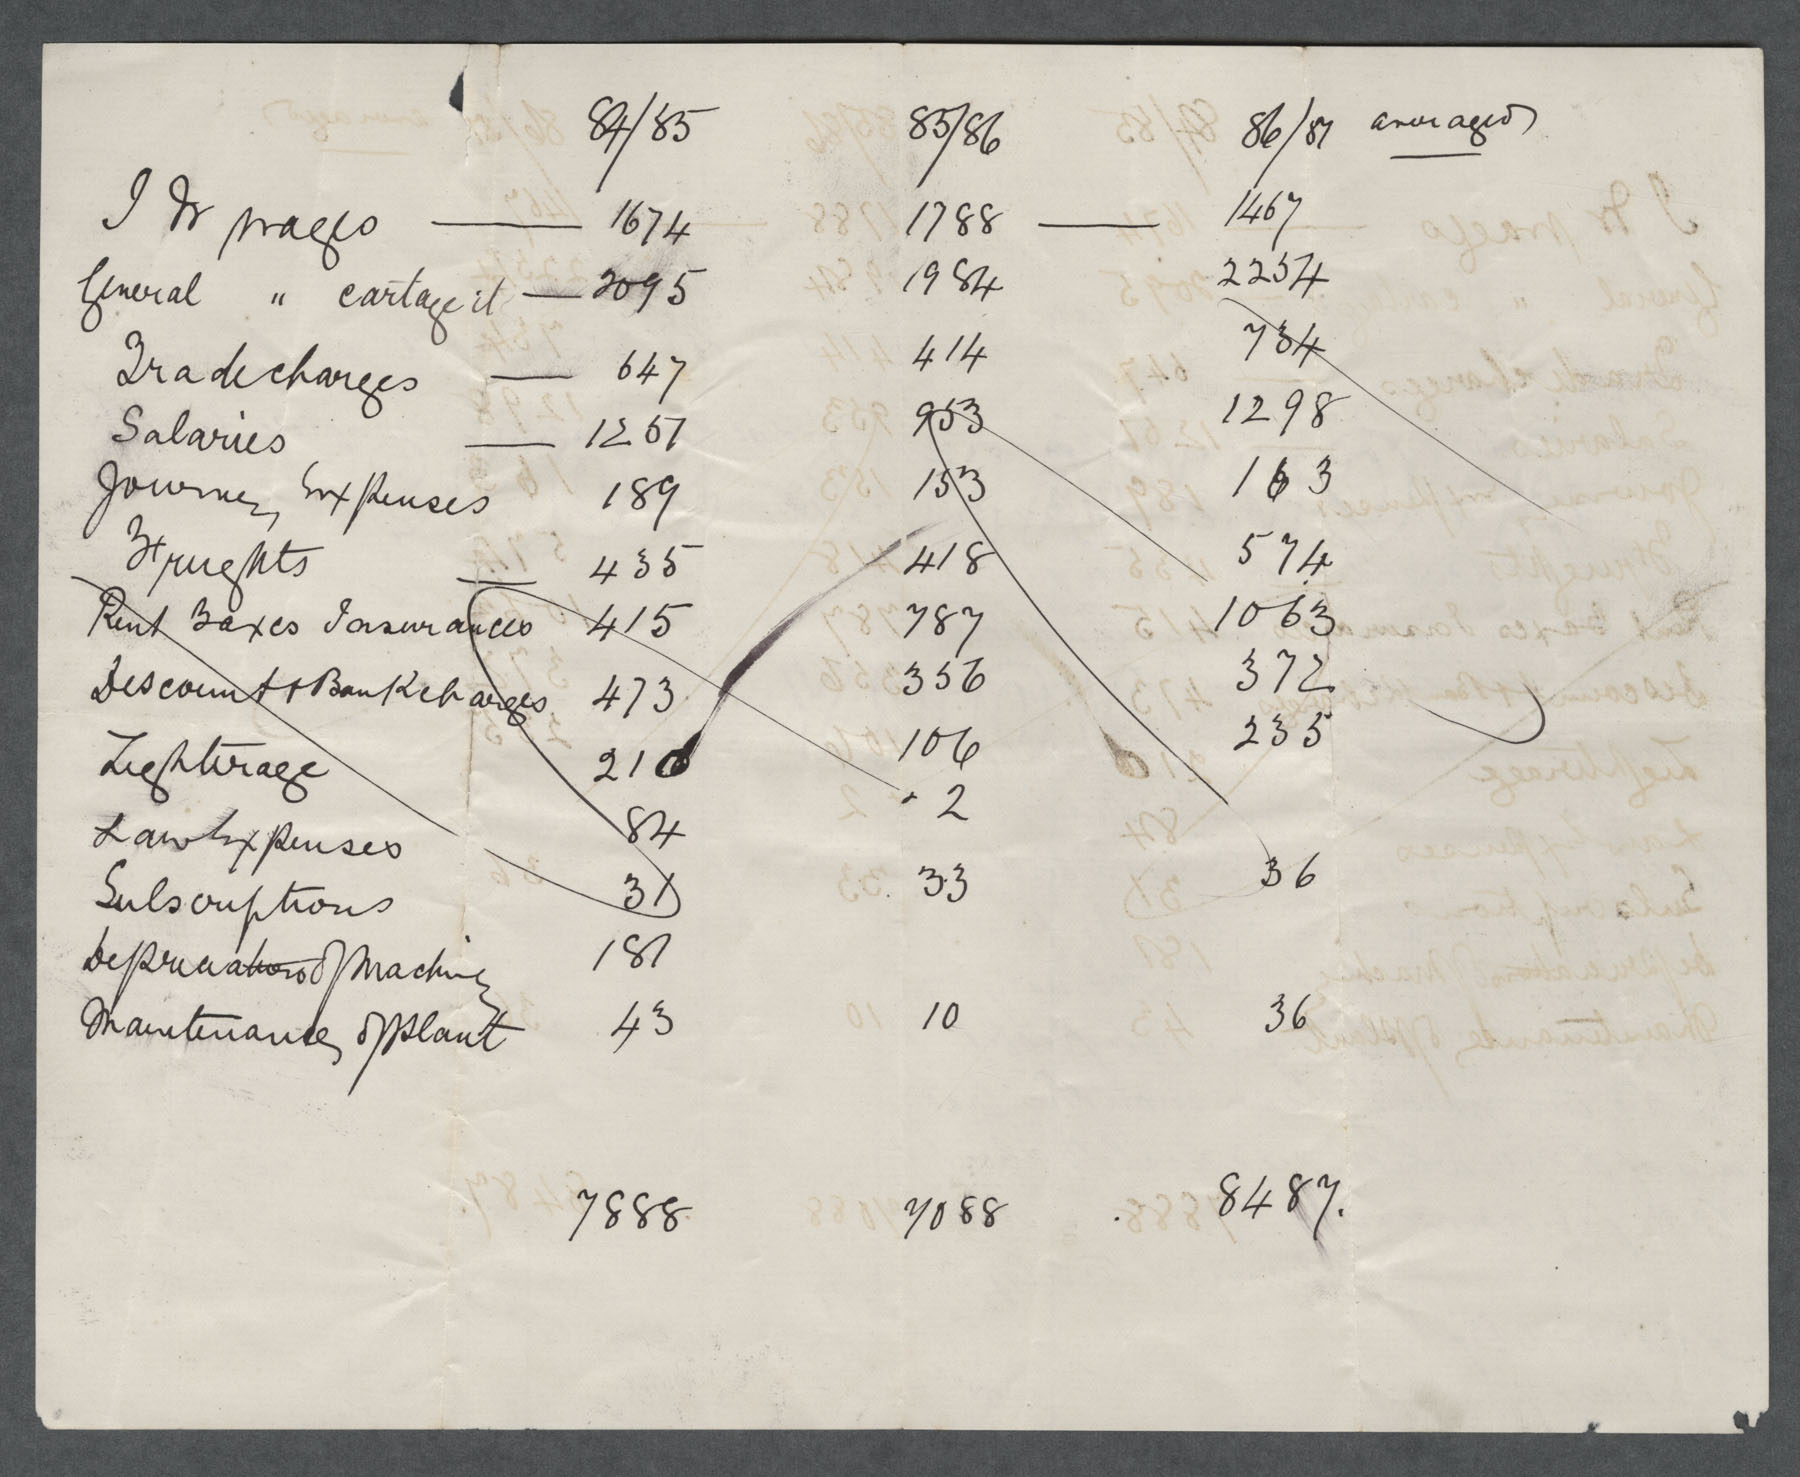 84/85 85/86 86/87 averaged
I W wages — 1674 1788 — 1467
General " cartage &c — 2095 1984 2254
Trade charges — 647 414 734
Salaries — 1257 953 1298
Journey Expenses 189 153 163
Freights — 435 418 574
Rent Taxes Insurances 415 787 1063
Discount & Bank charges 473 356 372
Lighterage 210 106 235
Law Expenses 84 2
Subscriptions 31 33 36
Depreciation of Machinery 181
Maintenance of plant 43 10 36
7888 7088 8487.